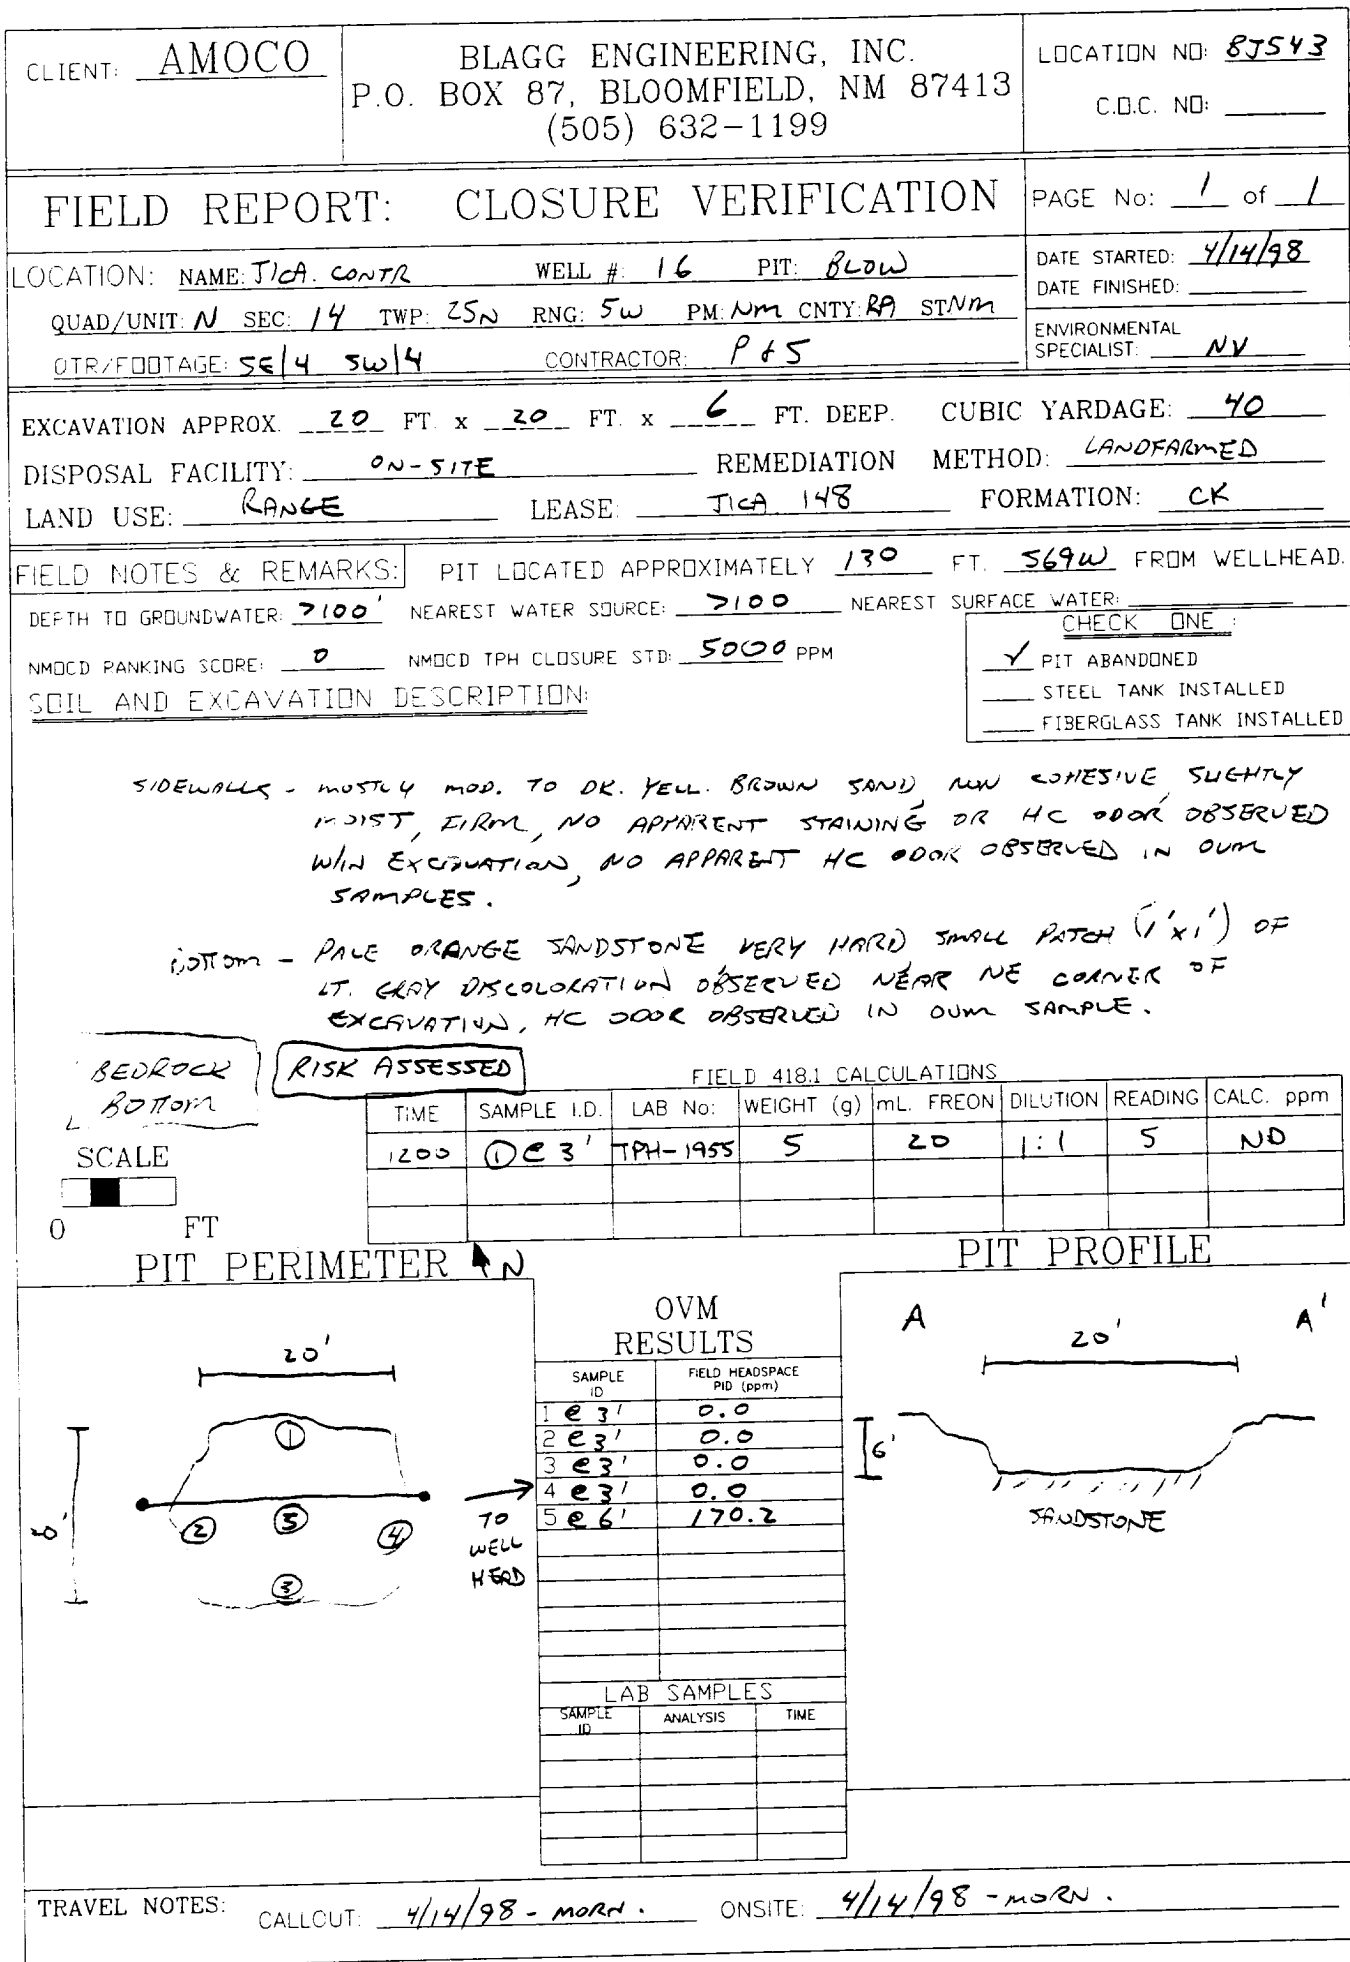 CLIENT: AMOCO
BLAGG ENGINEERING, INC.
P.O. BOX 87, BLOOMFIELD, NM 87413
(505) 632-1199
LOCATION NO: 8J543
C.O.C. NO:
FIELD REPORT: CLOSURE VERIFICATION
PAGE No: 1 of 1
LOCATION: NAME: JICA. CONTR WELL #: 16 PIT: BLOW
QUAD/UNIT: N SEC: 14 TWP: 25N RNG: 5W PM: NM CNTY: RA ST NM
QTR/FOOTAGE: SE/4 SW/4 CONTRACTOR: P & S
DATE STARTED: 4/14/98
DATE FINISHED:
ENVIRONMENTAL
SPECIALIST: NV
EXCAVATION APPROX. 20 FT. x 20 FT. x 6 FT. DEEP. CUBIC YARDAGE: 40
DISPOSAL FACILITY: ON-SITE REMEDIATION METHOD: LANDFARMED
LAND USE: RANGE LEASE: JICA 148 FORMATION: CK
FIELD NOTES & REMARKS: PIT LOCATED APPROXIMATELY 130 FT. S69W FROM WELLHEAD.
DEPTH TO GROUNDWATER: >100' NEAREST WATER SOURCE: >100 NEAREST SURFACE WATER:
NMOCD RANKING SCORE: 0 NMOCD TPH CLOSURE STD: 5000 PPM
CHECK ONE :
✓ PIT ABANDONED
STEEL TANK INSTALLED
FIBERGLASS TANK INSTALLED
SOIL AND EXCAVATION DESCRIPTION:
SIDEWALLS - MOSTLY MOD. TO DK. YELL. BROWN SAND, NON COHESIVE, SLIGHTLY
MOIST, FIRM, NO APPARENT STAINING OR HC ODOR OBSERVED
W/IN EXCAVATION, NO APPARENT HC ODOR OBSERVED IN OVM
SAMPLES.
BOTTOM - PALE ORANGE SANDSTONE, VERY HARD, SMALL PATCH (1'x1') OF
LT. GRAY DISCOLORATION OBSERVED NEAR NE CORNER OF
EXCAVATION, HC ODOR OBSERVED IN OVM SAMPLE.
BEDROCK
BOTTOM
RISK ASSESSED
FIELD 418.1 CALCULATIONS
TIME SAMPLE I.D. LAB No: WEIGHT (g) mL. FREON DILUTION READING CALC. ppm
1200 ① @ 3' TPH-1955 5 20 1:1 5 ND
SCALE
0 FT
PIT PERIMETER N
PIT PROFILE
20'
20'
①
② ⑤ ④
③
TO
WELL
HEAD
OVM
RESULTS
SAMPLE ID FIELD HEADSPACE PID (ppm)
1 @ 3' 0.0
2 @ 3' 0.0
3 @ 3' 0.0
4 @ 3' 0.0
5 @ 6' 170.2
LAB SAMPLES
SAMPLE ID ANALYSIS TIME
A A'
20'
6'
SANDSTONE
TRAVEL NOTES: CALLOUT: 4/14/98 - MORN. ONSITE: 4/14/98 - MORN.